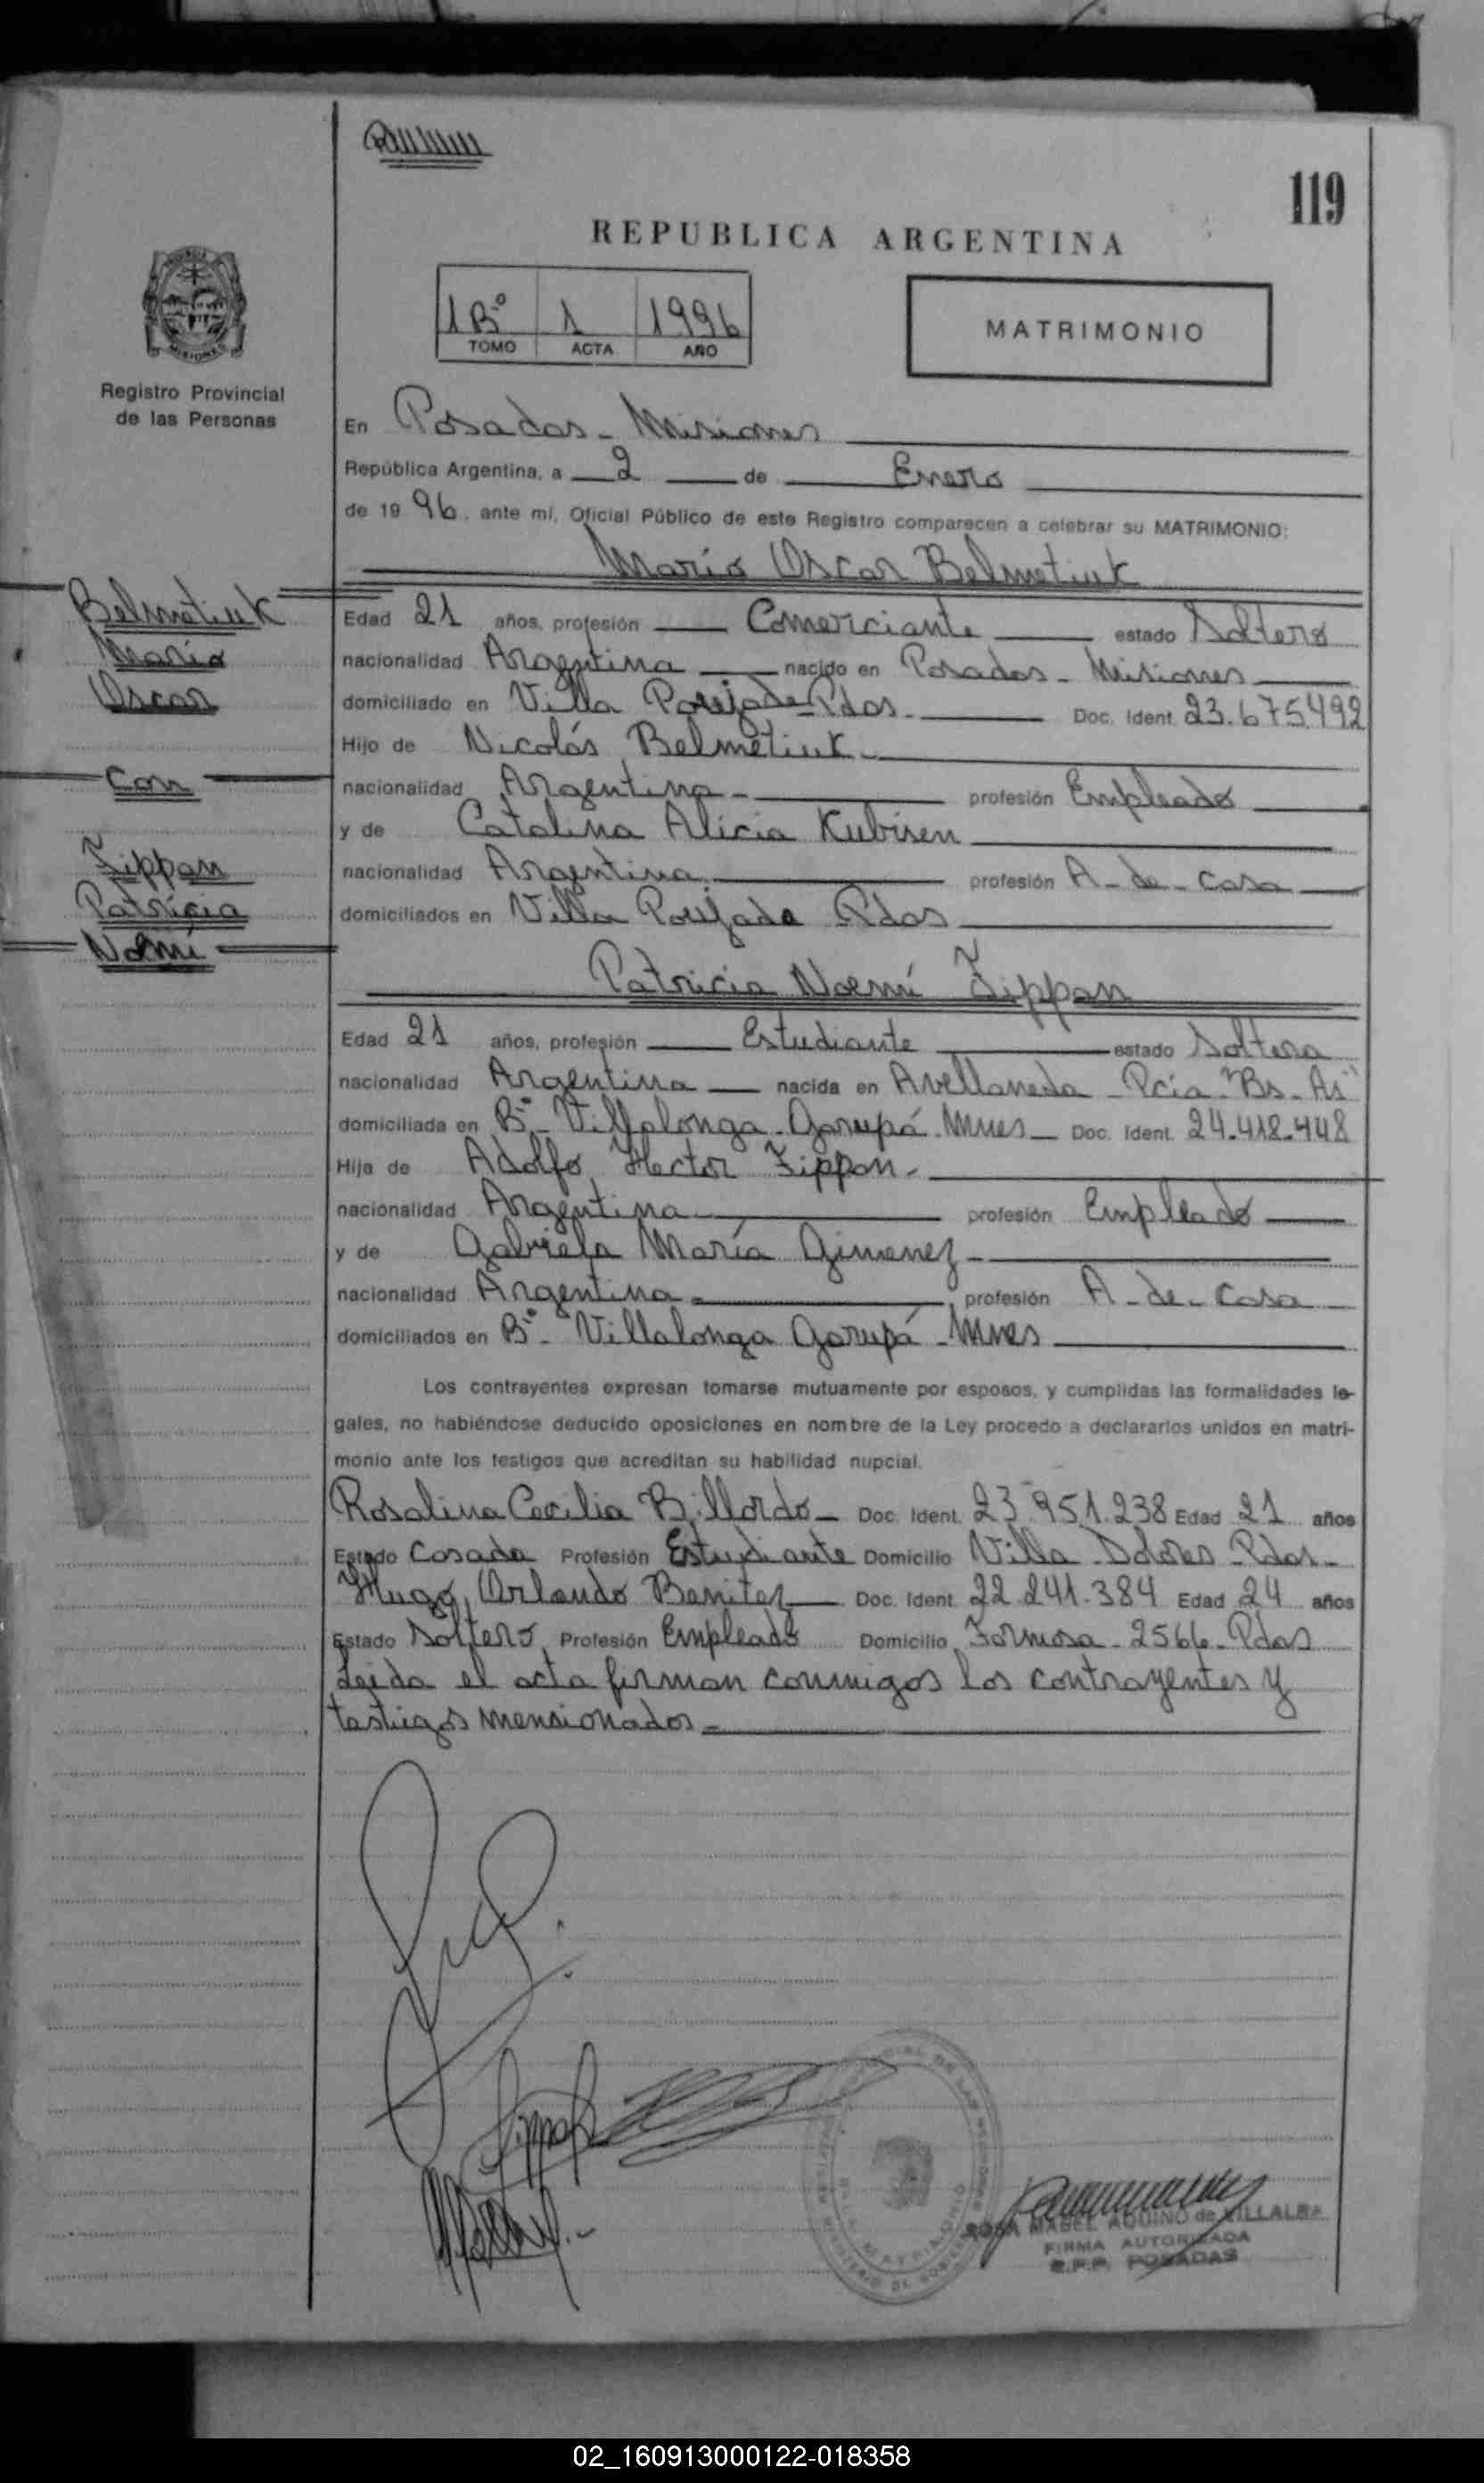 119
REPUBLICA ARGENTINA
1Bº 1 1996
TOMO ACTA AÑO
MATRIMONIO
Registro Provincial
de las Personas
En Posadas - Misiones
República Argentina, a 2 de Enero
de 1996. ante mí, Oficial Público de este Registro comparecen a celebrar su MATRIMONIO:
Mario Oscar Belmetiuk
Belmetiuk
Mario
Oscar
Con
Zippan
Patricia
Noemí
Edad 21 años, profesión Comerciante estado Soltero
nacionalidad Argentina nacido en Posadas - Misiones
domiciliado en Villa Poujade Pdas. Doc. Ident. 23.675.492
Hijo de Nicolás Belmetiuk
nacionalidad Argentina - profesión Empleado
y de Catalina Alicia Kubisen
nacionalidad Argentina profesión A - de - casa
domiciliados en Villa Poujade Pdas
Patricia Noemí Zippan
Edad 21 años, profesión Estudiante estado Soltera
nacionalidad Argentina nacida en Avellaneda - Pcia. "Bs. As"
domiciliada en Bº - Villalonga - Garupá - Mnes - Doc. Ident. 24.412.448
Hija de Adolfo Hector Zippan -
nacionalidad Argentina profesión Empleado
y de Gabriela María Gimenez -
nacionalidad Argentina - profesión A - de - casa
domiciliados en Bº - Villalonga Garupá - Mnes
Los contrayentes expresan tomarse mutuamente por esposos, y cumplidas las formalidades le-
gales, no habiéndose deducido oposiciones en nombre de la Ley procedo a declararlos unidos en matri-
monio ante los testigos que acreditan su habilidad nupcial.
Rosalina Cecilia Billordo - Doc. Ident. 23.951.238 Edad 21 años
Estado Casada Profesión Estudiante Domicilio Villa Dolores - Pdas -
Hugo Orlando Benitez Doc. Ident. 22.241.384 Edad 24 años
Estado Soltero Profesión Empleado Domicilio Formosa - 2566 - Pdas
Leida el acta firman conmigos los contrayentes y
testigos mensionados -
ROSA MABEL AQUINO de VILLALBA
FIRMA AUTORIZADA
R.P.P. POSADAS
02_160913000122-018358